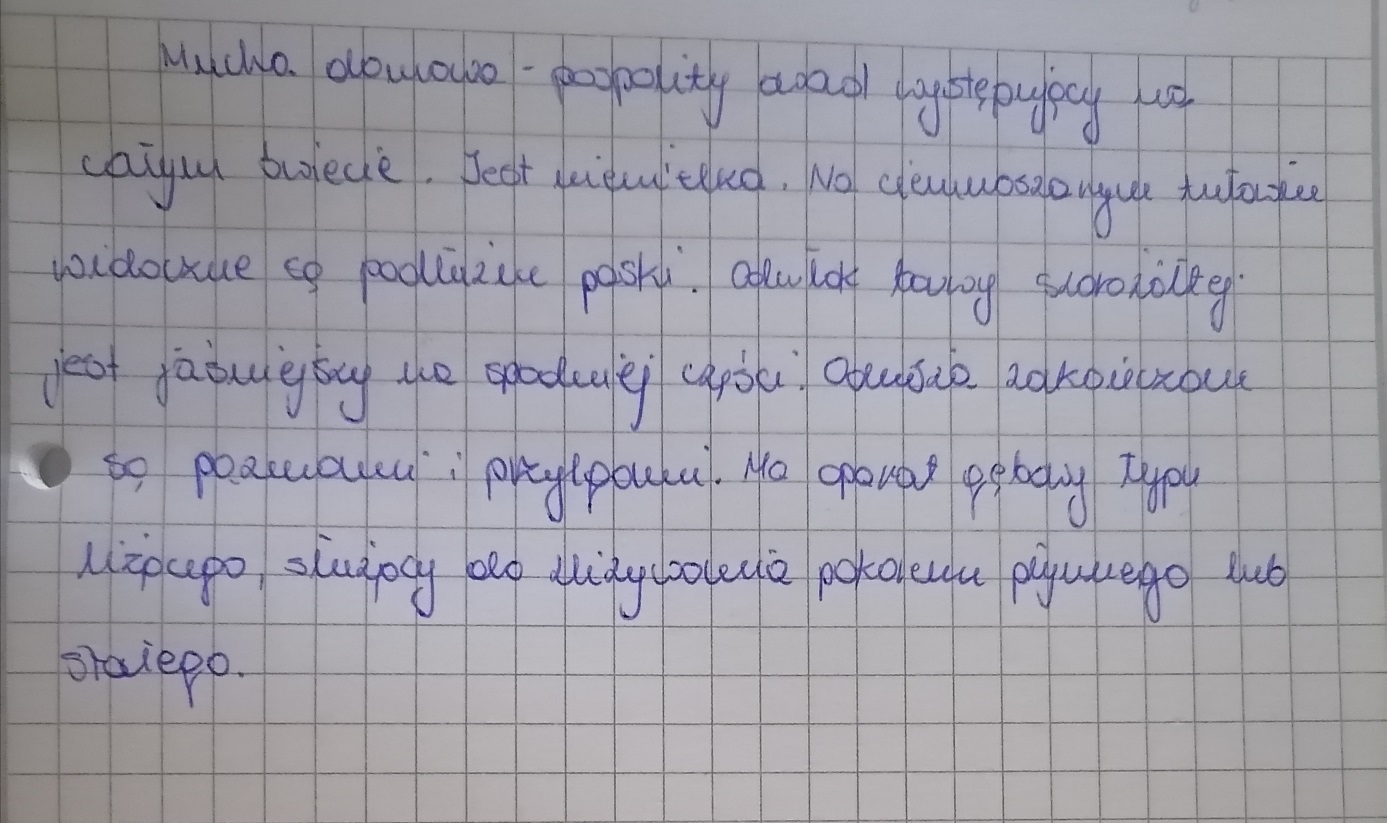 Mucha domowa - pospolity owad występujący na
całym świecie. Jest niewielka. Na ciemnoszarym tułowiu
widoczne są podłużne paski. Odwłok barwy szarożółtej
jest jaśniejszy na spodniej części. Odnóża zakończone
są pazurami i przylgami. Ma aparat gębowy typu
liżącego, służący do zlizywania pokarmu płynnego lub
stałego.